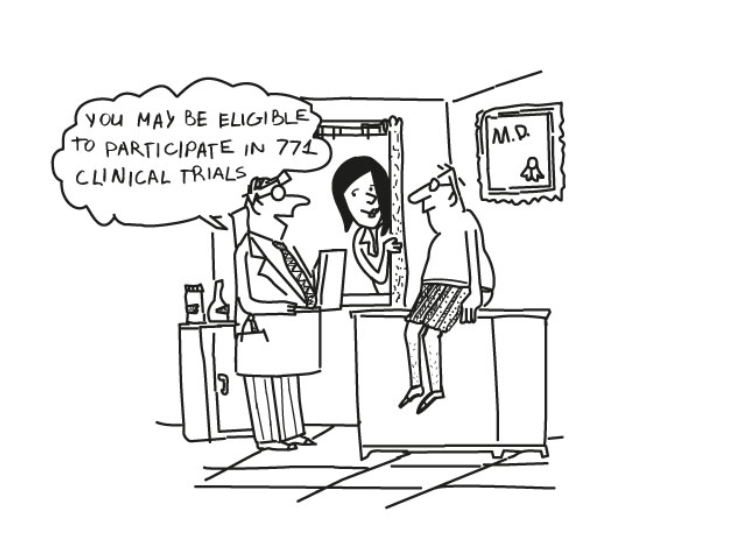 YOU MAY BE ELIGIBLE
TO PARTICIPATE IN 771
CLINICAL TRIALS
M.D.